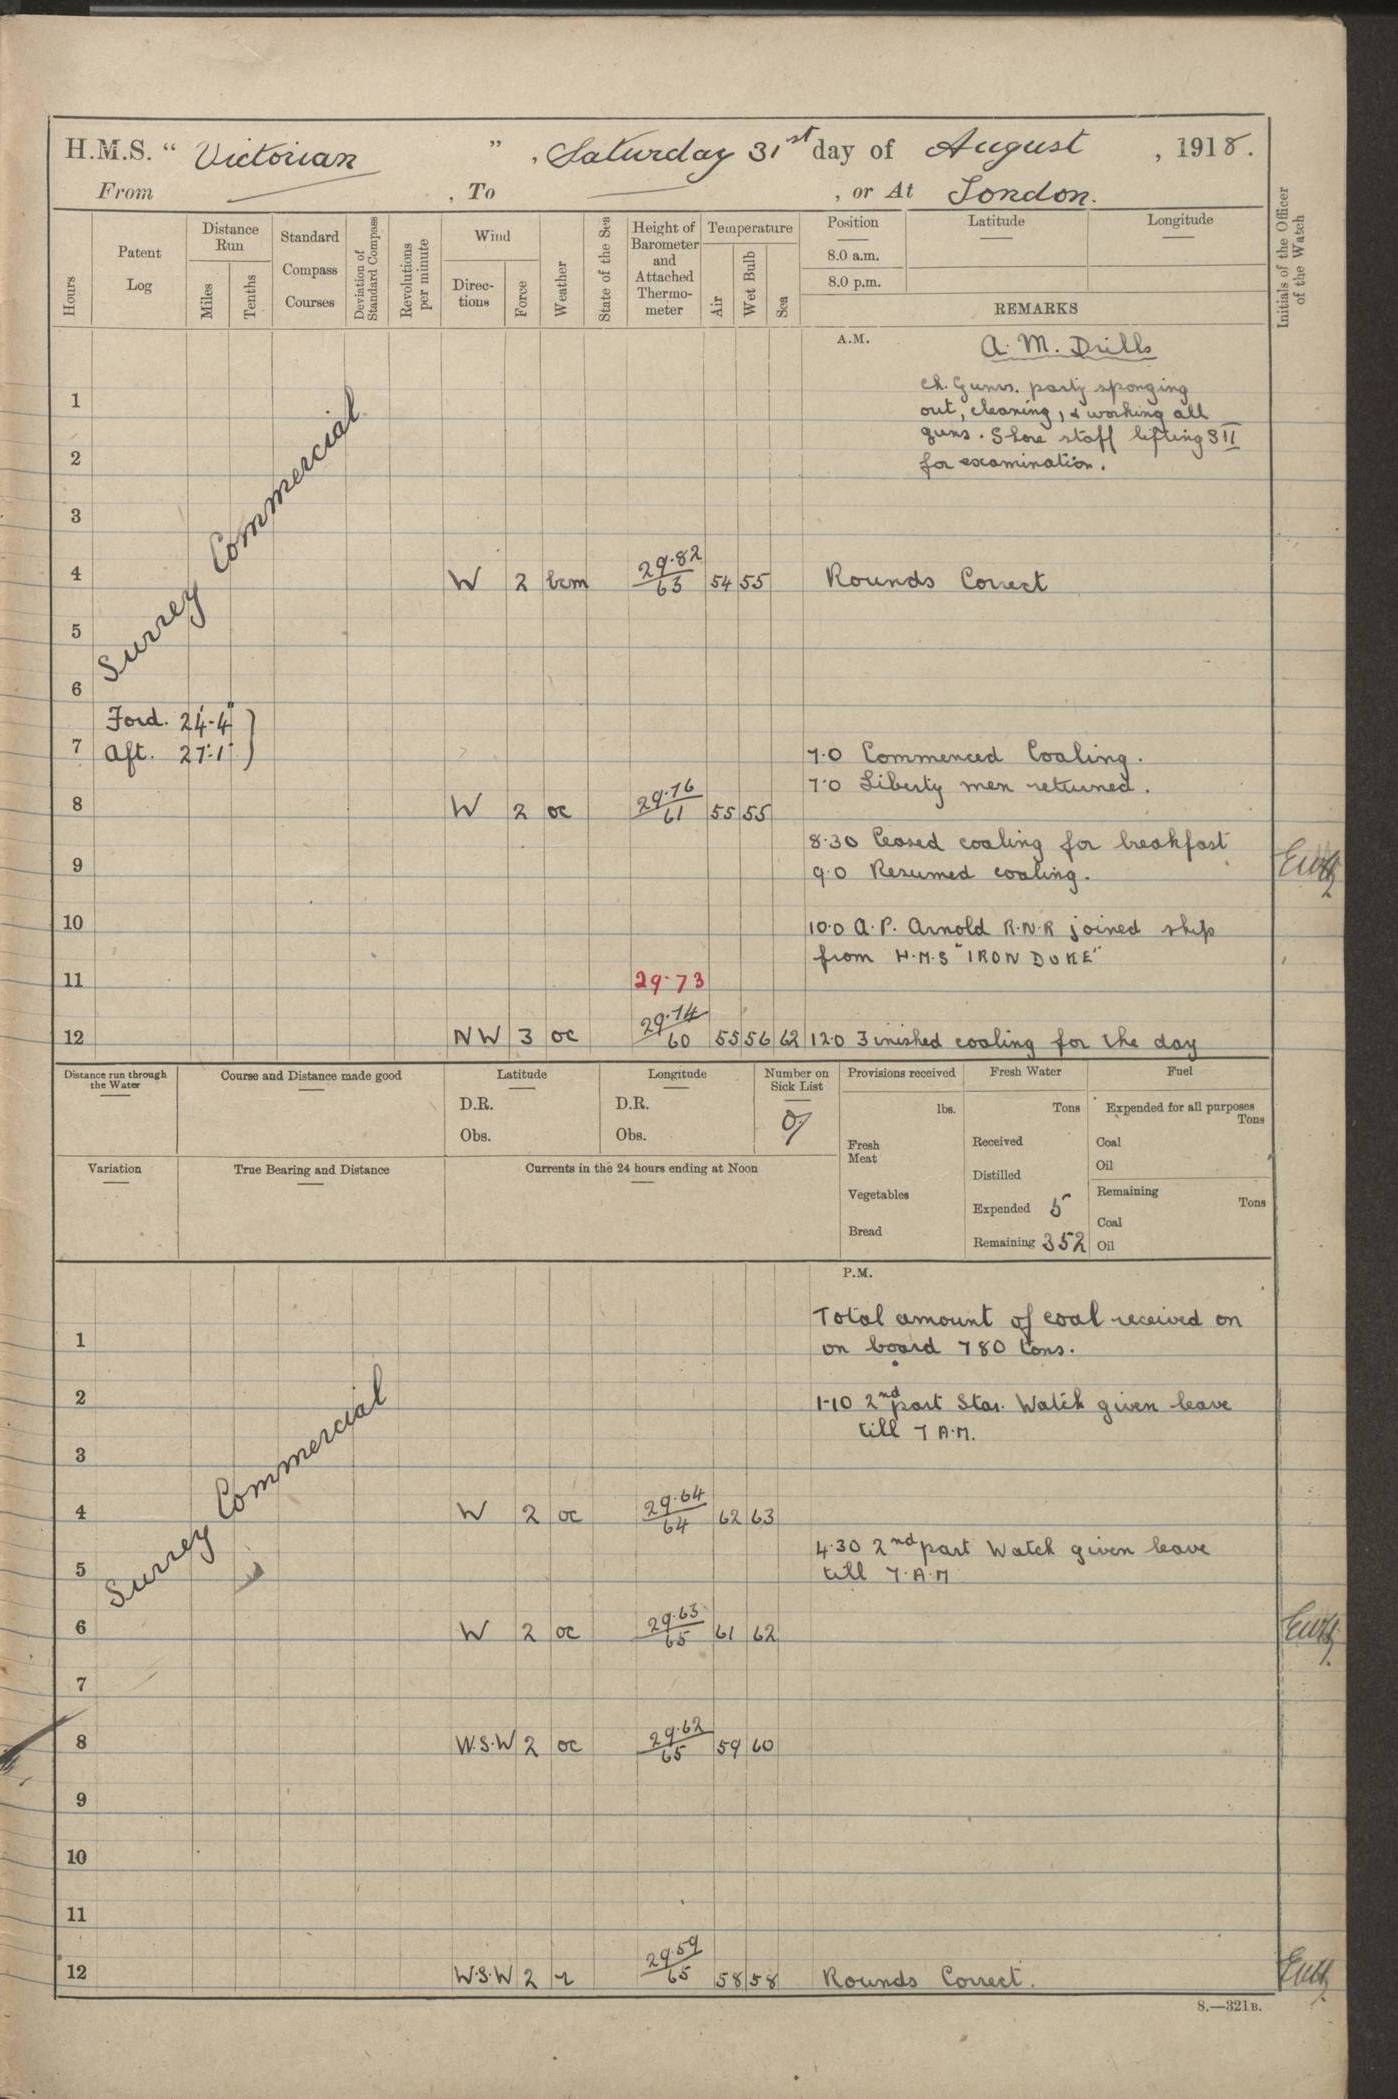 H.M.S. "Victorian", Saturday 31st day of August, 1918.
From — , To — , or At London.
Hours
Patent Log
Distance Run
Miles
Tenths
Standard Compass Courses
Deviation of Standard Compass
Revolutions per minute
Wind
Directions
Force
Weather
State of the Sea
Height of Barometer and Attached Thermometer
Temperature
Air
Wet Bulb
Sea
Position
8.0 a.m.
8.0 p.m.
Latitude
Longitude
REMARKS
Initials of the Officer of the Watch
A.M.
A. M. Drills
Ch. Gunrs. party sponging
out, cleaning, & working all
guns. Shore staff lifting S II
for examination.
Surrey Commercial
1
2
3
4 W 2 bcm 29.82/63 54 55 Rounds Correct
5
6
Ford. 24'-4"
Aft. 27'-1" }
7 7.0 Commenced Coaling.
7.0 Liberty men returned.
8 W 2 oc 29.76/61 55 55
8.30 Ceased coaling for breakfast
9 9.0 Resumed coaling.
10 10.0 A.P. Arnold R.N.R joined ship
from H.M.S "IRON DUKE"
11 29.73
12 NW 3 oc 29.74/60 55 56 62 12.0 Finished coaling for the day
Distance run through the Water
Course and Distance made good
Latitude
D.R.
Obs.
Longitude
D.R.
Obs.
Number on Sick List
Provisions received
lbs.
Fresh Meat
Vegetables
Bread
Fresh Water
Tons
Received
Distilled
Expended 5
Remaining 352
Fuel
Expended for all purposes
Tons
Coal
Oil
Remaining
Tons
Coal
Oil
Variation
True Bearing and Distance
Currents in the 24 hours ending at Noon
P.M.
Surrey Commercial
Total amount of coal received on
1 on board 780 tons.
2 1.10 2nd part Star. Watch given leave
till 7 A.M.
3
4 W 2 oc 29.64/64 62 63
4.30 2nd part Watch given leave
5 till 7.A.M
6 W 2 oc 29.63/65 61 62
7
8 W.S.W 2 oc 29.62/65 59 60
9
10
11
12 W.S.W 2 r 29.59/65 58 58 Rounds Correct.
S.—321B.